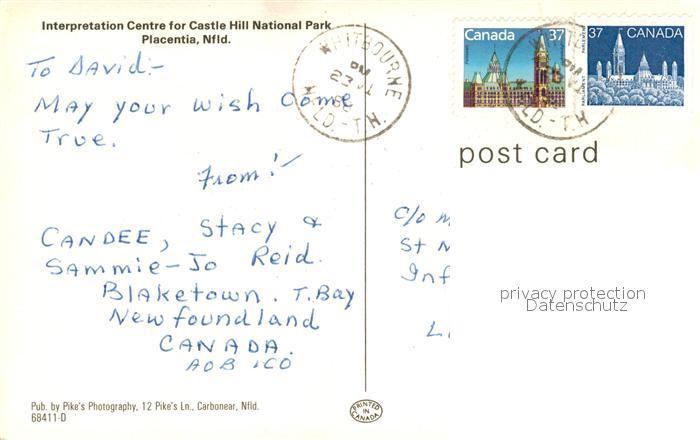 Interpretation Centre for Castle Hill National Park
Placentia, Nfld.
To David:-
May your wish Come
True.
From:-
CANDEE, Stacy &
Sammie-Jo Reid.
Blaketown. T. Bay
Newfoundland
CANADA.
A0B 1C0
Pub. by Pike's Photography, 12 Pike's Ln., Carbonear, Nfld.
68411-D
PRINTED IN CANADA
WHITBOURNE
PM
23
NFLD.-T.H.
Canada 37
37 CANADA
PARLEMENT
PARLIAMENT
post card
c/o
St
Inf
L
privacy protection
Datenschutz